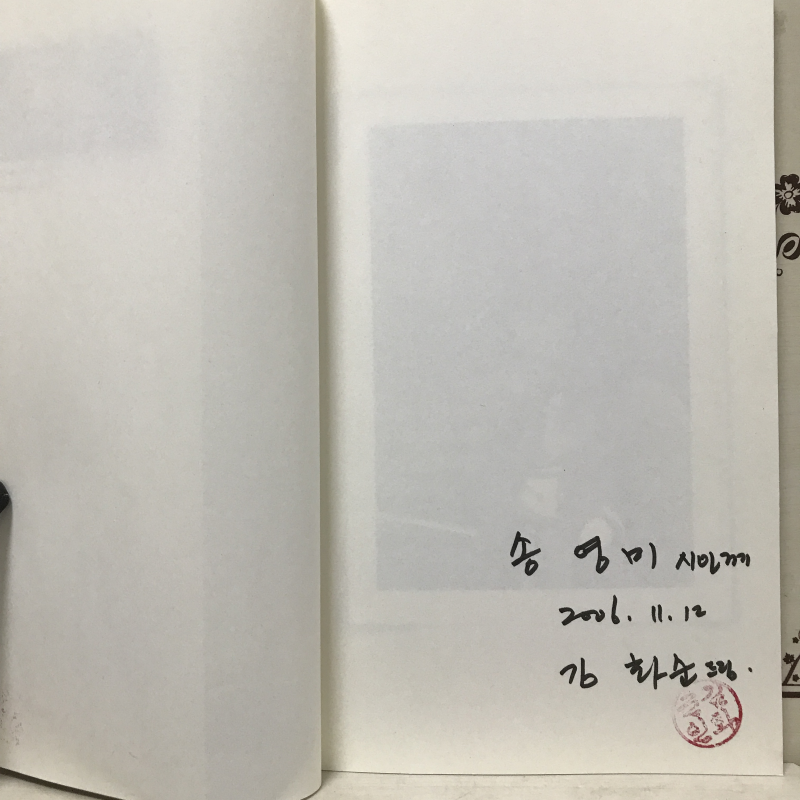 송 영 미 시인께
2006. 11. 12
김 화순 드림.